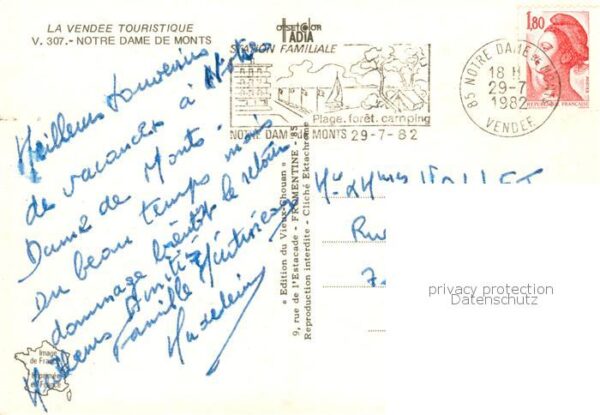 LA VENDEE TOURISTIQUE
V. 307.- NOTRE DAME DE MONTS
offset color
IADIA
STATION FAMILIALE
Plage. forêt. camping
NOTRE DAM DE MONTS 29-7-82
85 NOTRE DAME DE MONTS
18 H
29-7
1982
VENDEE
1,80
REPUBLIQUE FRANÇAISE
Meilleurs souvenirs
de vacances à Notre
Dame de Monts
Du beau temps mais
dommage bientôt le retour
Meilleures Amitiés
Famille
Madeleine
« Edition du Vieux-Chouan »
9, rue de l'Estacade - FROMENTINE - 85
Reproduction interdite - Cliché Ektachrome
Rue
7
privacy protection
Datenschutz
Image
de France
Imprimée
en France